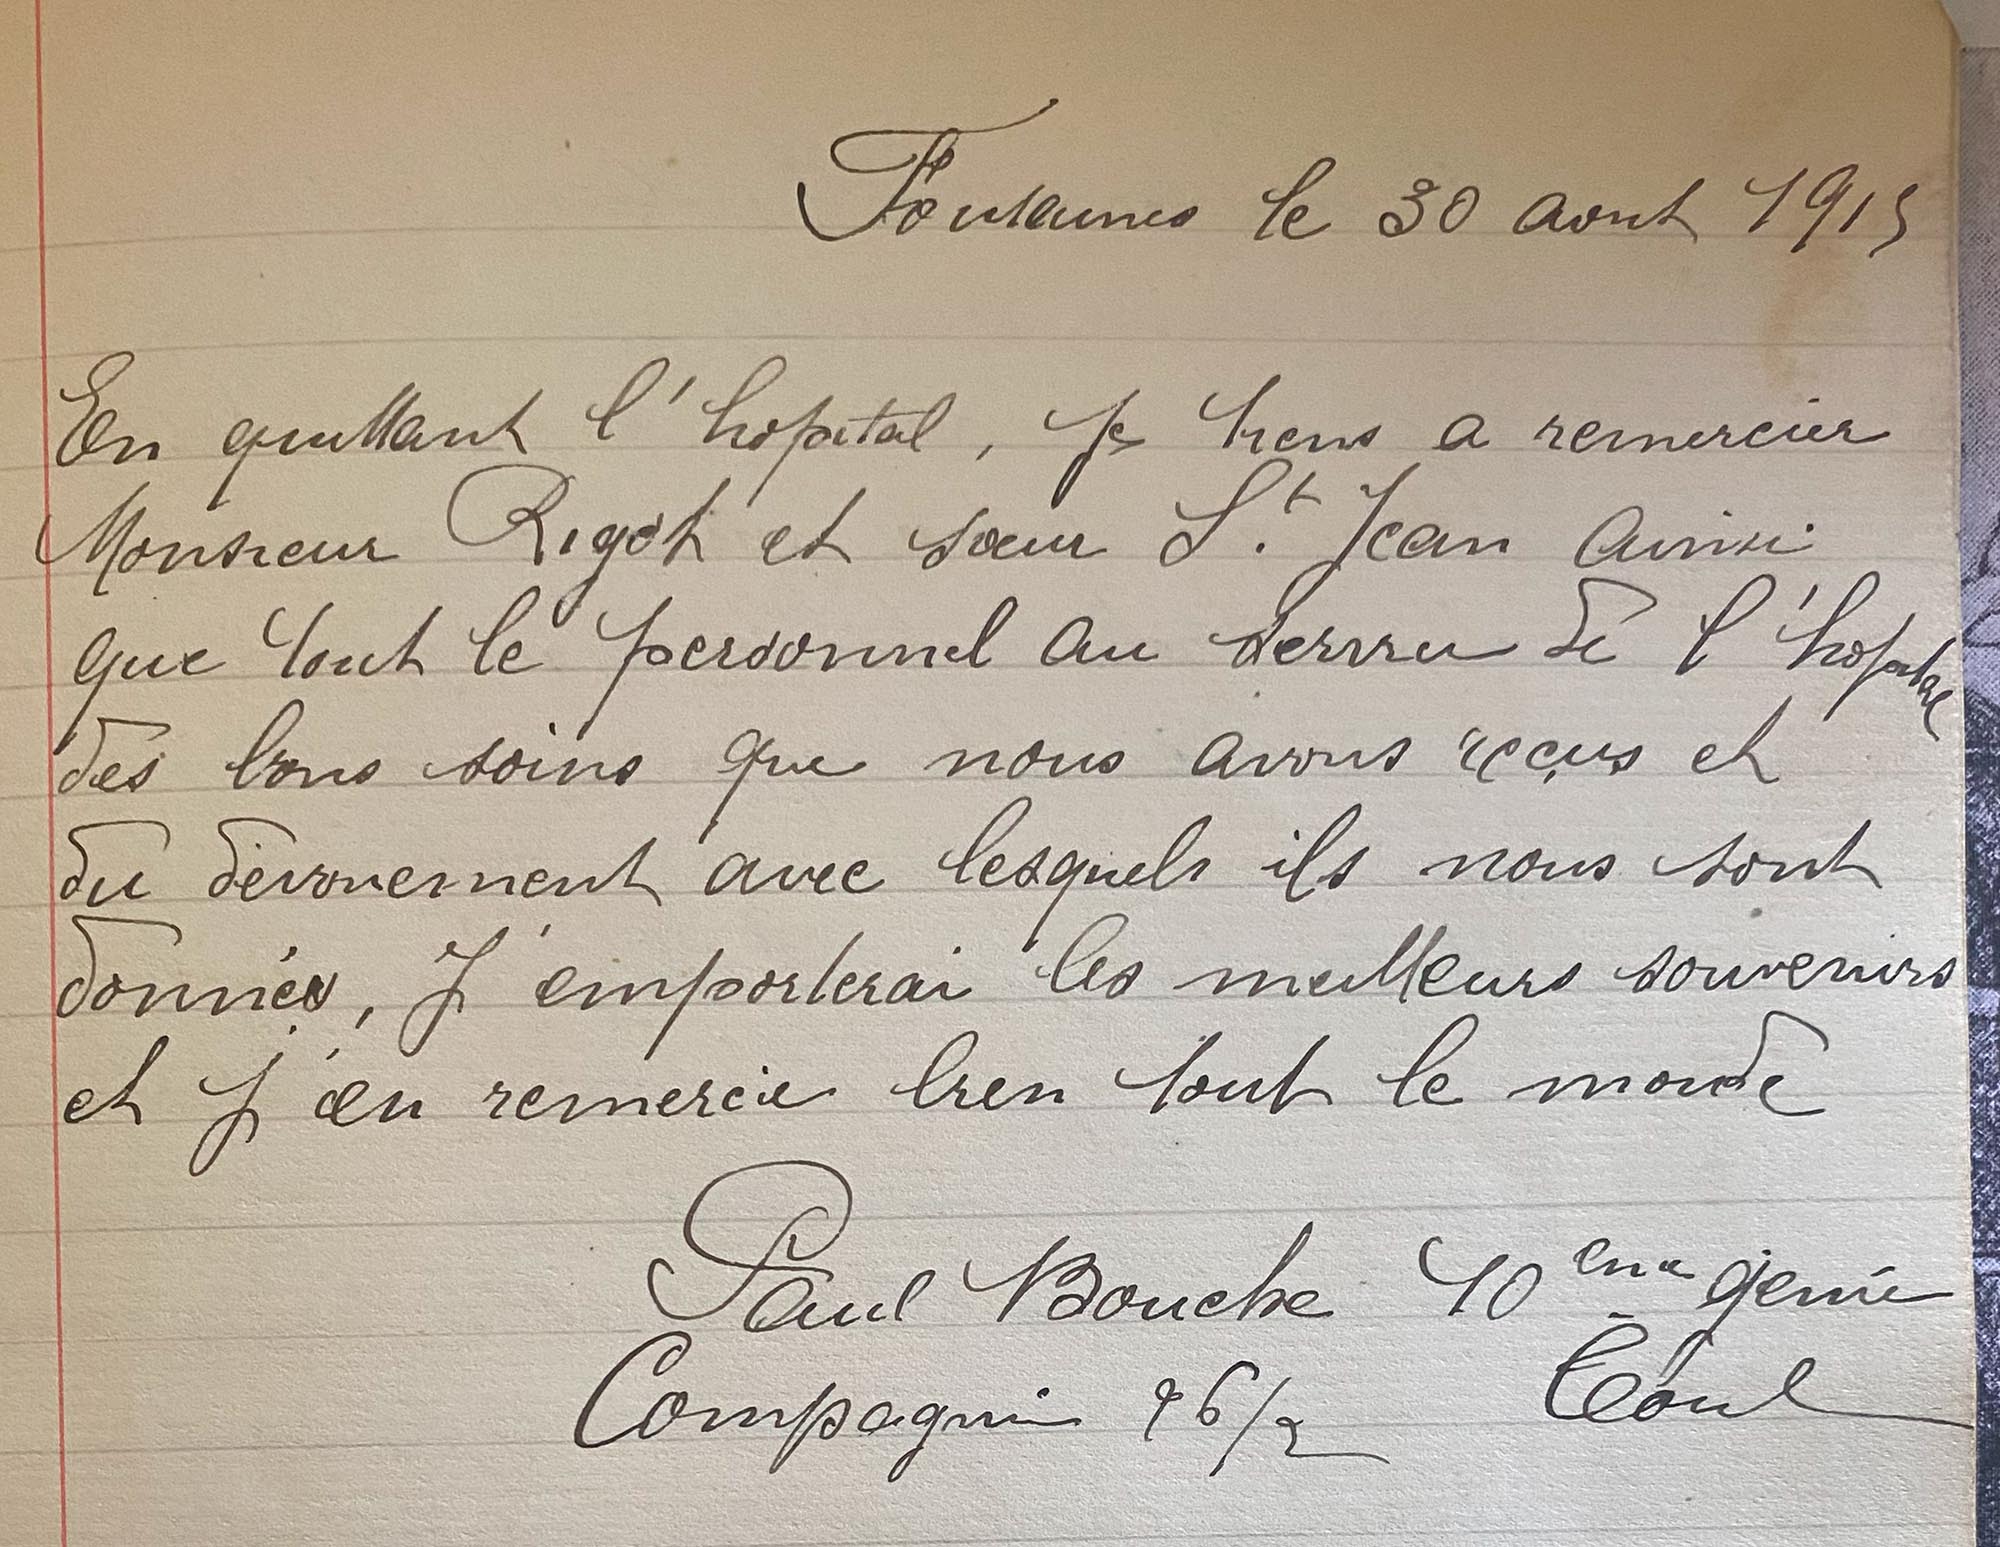 Foulaines le 30 aout 1915
En quittant l'hopital, je tiens a remercier
Monsieur Rigot et sœur St. Jean ainsi
que tout le personnel au service de l'hopital
des bons soins que nous avons reçus et
du dévouement avec lesquels ils nous sont
donnés, J'emporterai les meilleurs souvenirs
et j'en remercie bien tout le monde
Paul Bouche 10eme genie
Compagnie 26/2 Toul